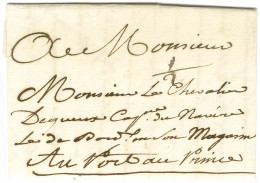 A Monsieur
Monsieur Le Chevalier
Dequeux Cap.ne du Navire
Le de Bord. en son Magasin
Au Port au Prince